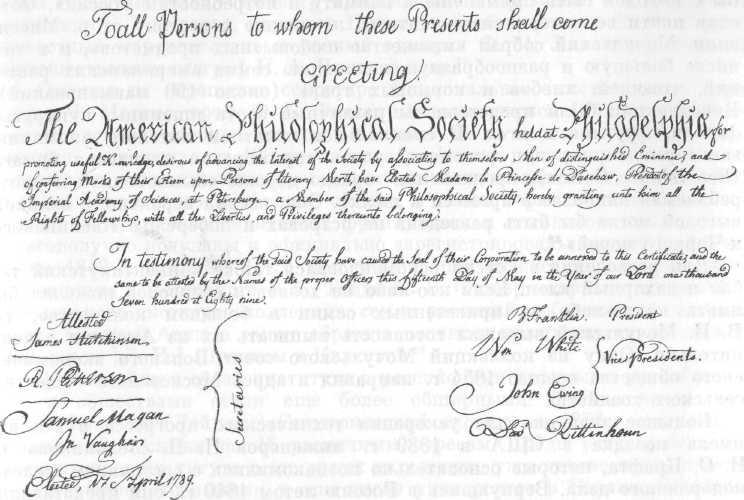 To all Persons to whom these Presents shall come
Greeting
The American Philosophical Society held at Philadelphia for
promoting useful Knowledge, desirous of advancing the Interest of the Society by associating to themselves Men of distinguished Eminence, and
of conferring Marks of their Esteem upon Persons of literary Merit, have Elected Madame la Princesse de Daschaw, President of the
Imperial Academy of Sciences, at Petersburg, a Member of the said Philosophical Society, hereby granting unto him all the
Rights of Fellowship, with all the Liberties and Privileges thereunto belonging.
In Testimony whereof the said Society have caused the Seal of their Corporation to be annexed to this Certificate, and the
same to be attested by the Names of the proper Officers this fifteenth Day of May in the Year of our Lord one thousand
Seven hundred et Eighty nine.
Attested
James Hutchinson
R. Patterson
Samuel Magaw
Jn Vaughan
Secretaries
Elected 17 April 1789.
B Franklin. President
Wm White
John Ewing
Davd Rittenhouse
Vice Presidents.